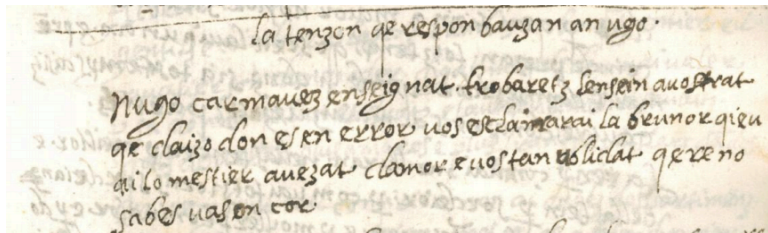 la tenzon qe respon bauzan an ugo.
Nugo car mavez enseignat. trobaretz lensein avostrat
qe claizo don es en error vos esclairarai la brunor qieu
ai lo mestier avezat damor e vos tan oblidat qe re no
sabes vas on cor.